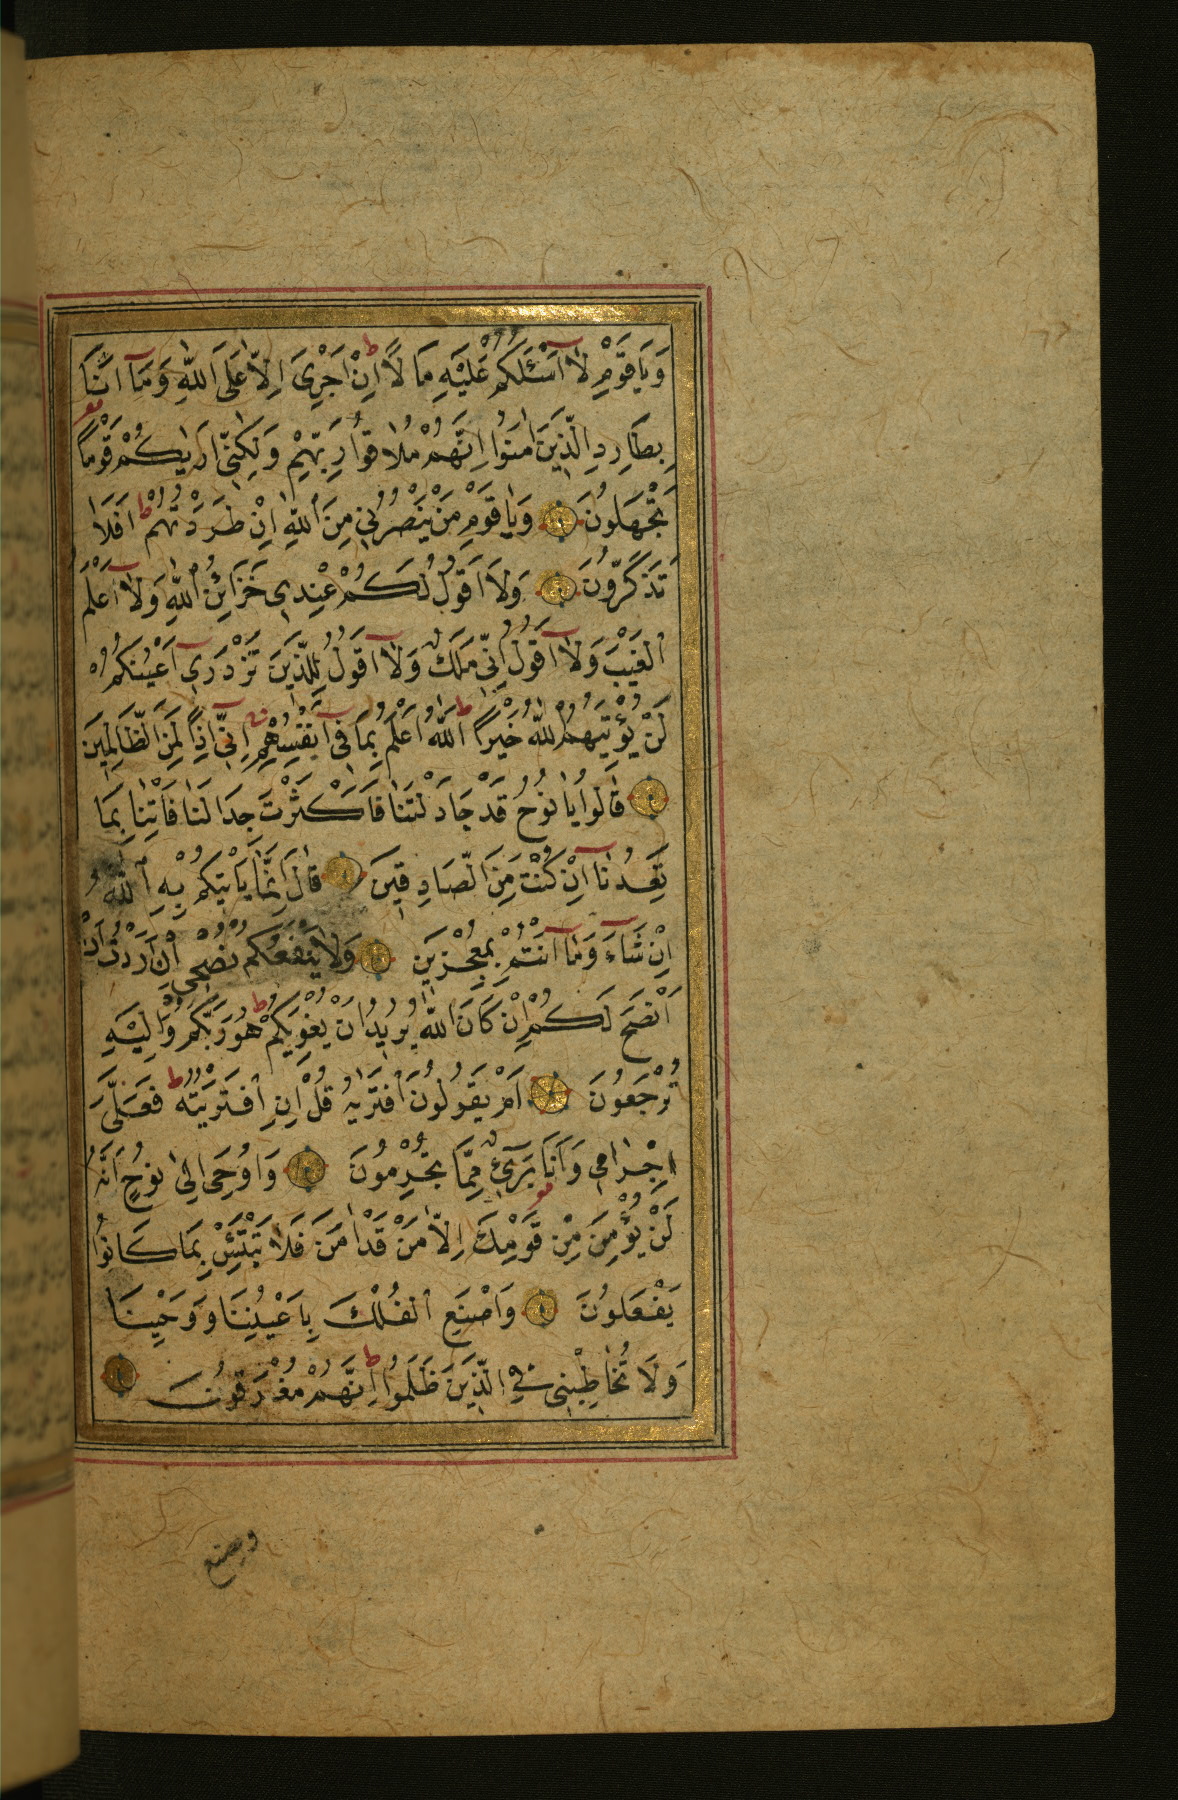 وَيَا قَوْمِ لَا أَسْئَلُكُمْ عَلَيْهِ مَالًا اِنْ اَجْرِيَ اِلَّا عَلَى اللّٰهِ وَمَا اَنَا
بِطَارِدِ الَّذِينَ اٰمَنُوا اِنَّهُمْ مُلَاقُوا رَبِّهِمْ وَلٰكِنِّي اَرٰيكُمْ قَوْمًا
تَجْهَلُونَ وَيَا قَوْمِ مَنْ يَنْصُرُنِي مِنَ اللّٰهِ اِنْ طَرَدْتُهُمْ اَفَلَا
تَذَكَّرُونَ وَلَا اَقُولُ لَكُمْ عِنْدِي خَزَائِنُ اللّٰهِ وَلَا اَعْلَمُ
الْغَيْبَ وَلَا اَقُولُ اِنِّي مَلَكٌ وَلَا اَقُولُ لِلَّذِينَ تَزْدَرِي اَعْيُنُكُمْ
لَنْ يُؤْتِيَهُمُ اللّٰهُ خَيْرًا اَللّٰهُ اَعْلَمُ بِمَا فِي اَنْفُسِهِمْ اِنِّي اِذًا لَمِنَ الظَّالِمِينَ
قَالُوا يَا نُوحُ قَدْ جَادَلْتَنَا فَاَكْثَرْتَ جِدَالَنَا فَاْتِنَا بِمَا
تَعِدُنَا اِنْ كُنْتَ مِنَ الصَّادِقِينَ قَالَ اِنَّمَا يَاْتِيكُمْ بِهِ اللّٰهُ
اِنْ شَاءَ وَمَا اَنْتُمْ بِمُعْجِزِينَ وَلَا يَنْفَعُكُمْ نُصْحِي اِنْ اَرَدْتُ اَنْ
اَنْصَحَ لَكُمْ اِنْ كَانَ اللّٰهُ يُرِيدُ اَنْ يُغْوِيَكُمْ هُوَ رَبُّكُمْ وَاِلَيْهِ
تُرْجَعُونَ اَمْ يَقُولُونَ افْتَرٰيهُ قُلْ اِنِ افْتَرَيْتُهُ فَعَلَيَّ
اِجْرَامِي وَاَنَا بَرِيءٌ مِمَّا تُجْرِمُونَ وَاُوحِيَ اِلٰى نُوحٍ اَنَّهُ
لَنْ يُؤْمِنَ مِنْ قَوْمِكَ اِلَّا مَنْ قَدْ اٰمَنَ فَلَا تَبْتَئِسْ بِمَا كَانُوا
يَفْعَلُونَ وَاصْنَعِ الْفُلْكَ بِاَعْيُنِنَا وَوَحْيِنَا
وَلَا تُخَاطِبْنِي فِي الَّذِينَ ظَلَمُوا اِنَّهُمْ مُغْرَقُونَ
ويصنع